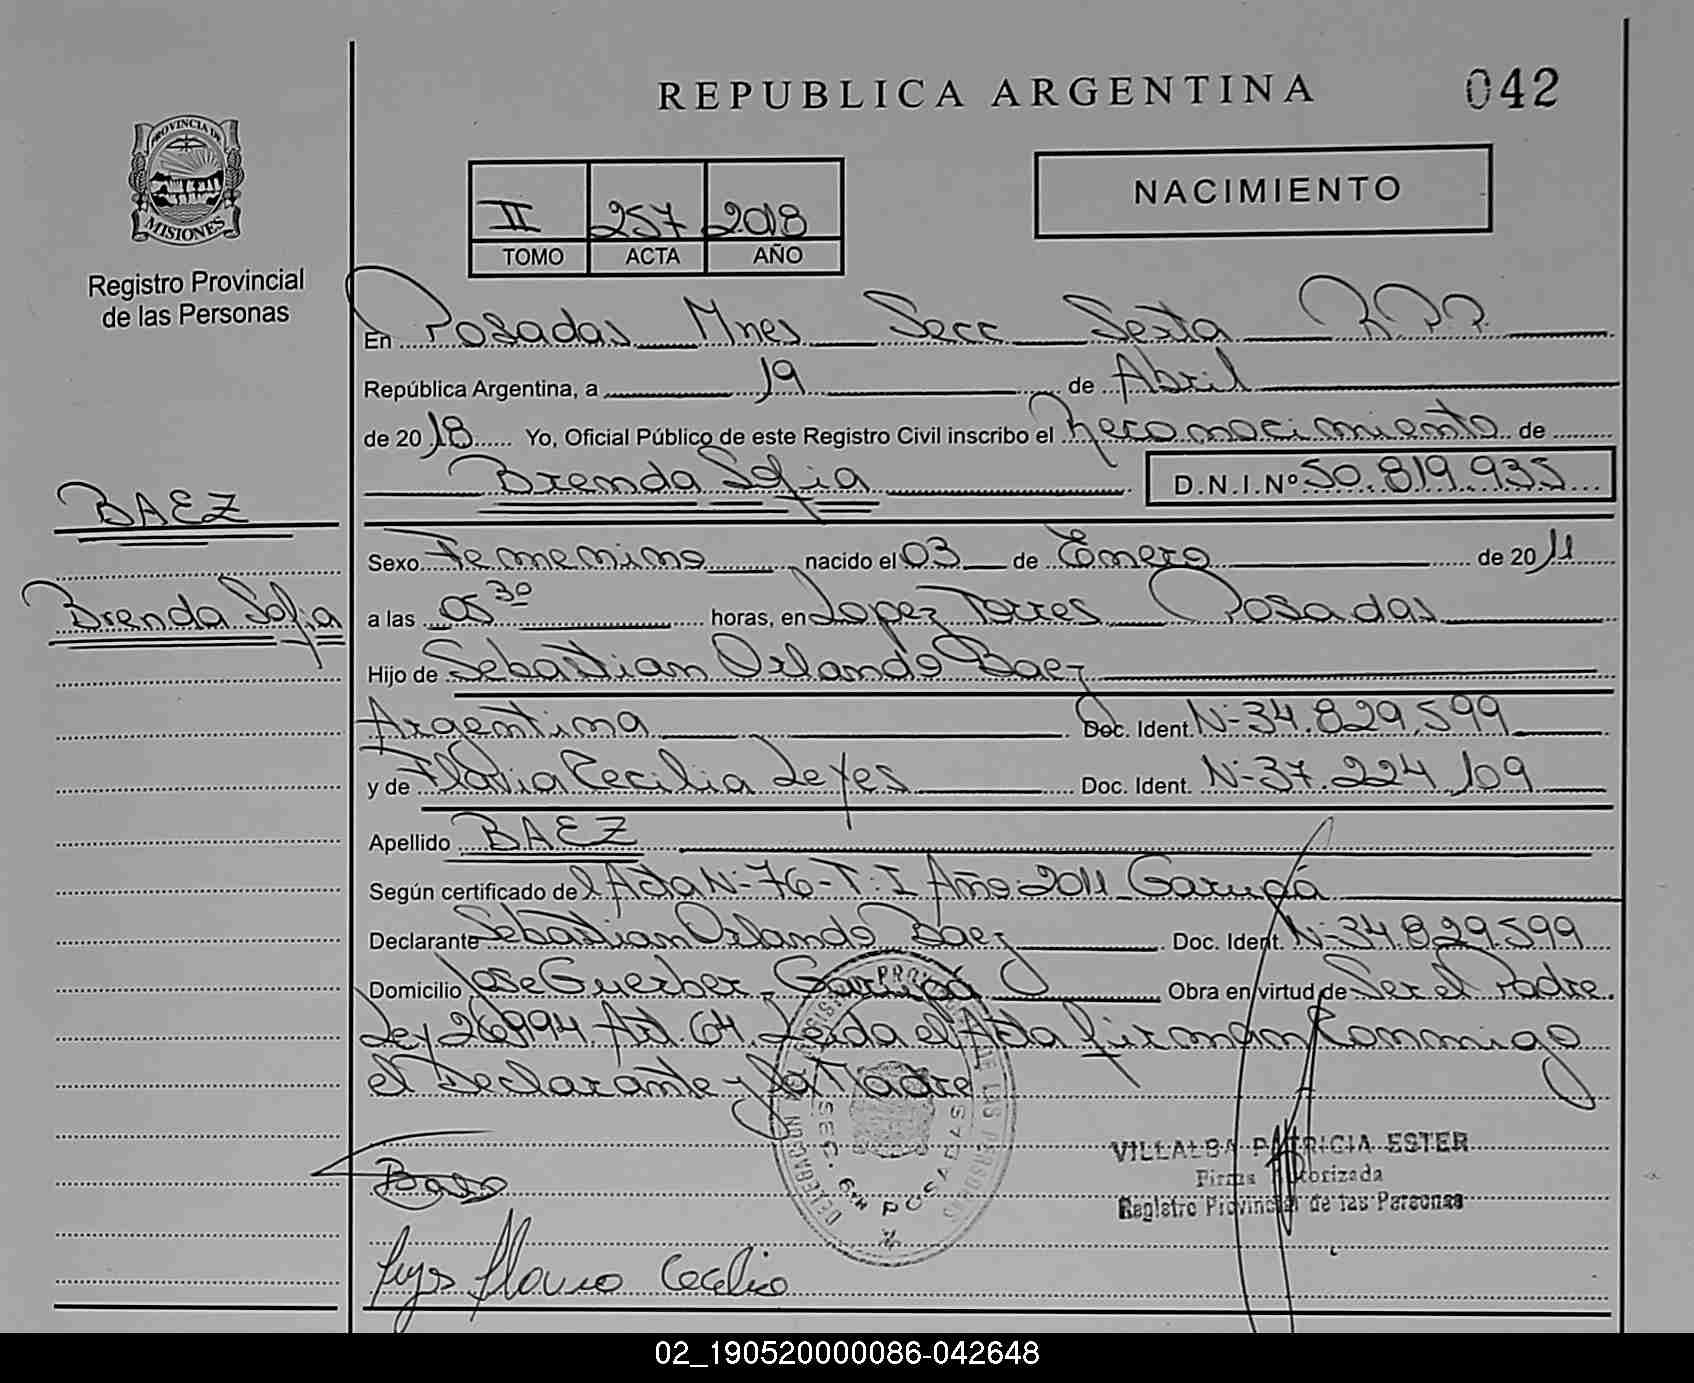 REPUBLICA ARGENTINA
042
PROVINCIA DE
MISIONES
Registro Provincial
de las Personas
NACIMIENTO
II 257 2018
TOMO ACTA AÑO
En Posadas Mnes Secc Sexta R.P.P.
República Argentina, a 19 de Abril
de 2018 Yo, Oficial Público de este Registro Civil inscribo el Reconocimiento de
Brenda Sofia D.N.I.Nº 50.819.935
BAEZ
Brenda Sofia
Sexo Femenino nacido el 03 de Enero de 2011
a las 05 30 horas, en Lopez Torres Posadas
Hijo de Sebastian Orlando Baez
Argentina Doc. Ident. N-34.829.599
y de Flavia Cecilia Leyes Doc. Ident. N-37.224.109
Apellido BAEZ
Según certificado del Acta N-76-T:I Año:2011 Garupá
Declarante Sebastian Orlando Baez Doc. Ident. N-34.829.599
Domicilio Jose Guerber, Garupá Obra en virtud de Ser el Padre.
Ley 26994 Art. 64. Leida el Acta firman Conmigo
el Declarante y la Madre
VILLALBA PATRICIA ESTER
Firma Autorizada
Registro Provincial de las Personas
SEC. 6ta POSADAS
Baez
Leyes Flavia Cecilia
02_190520000086-042648